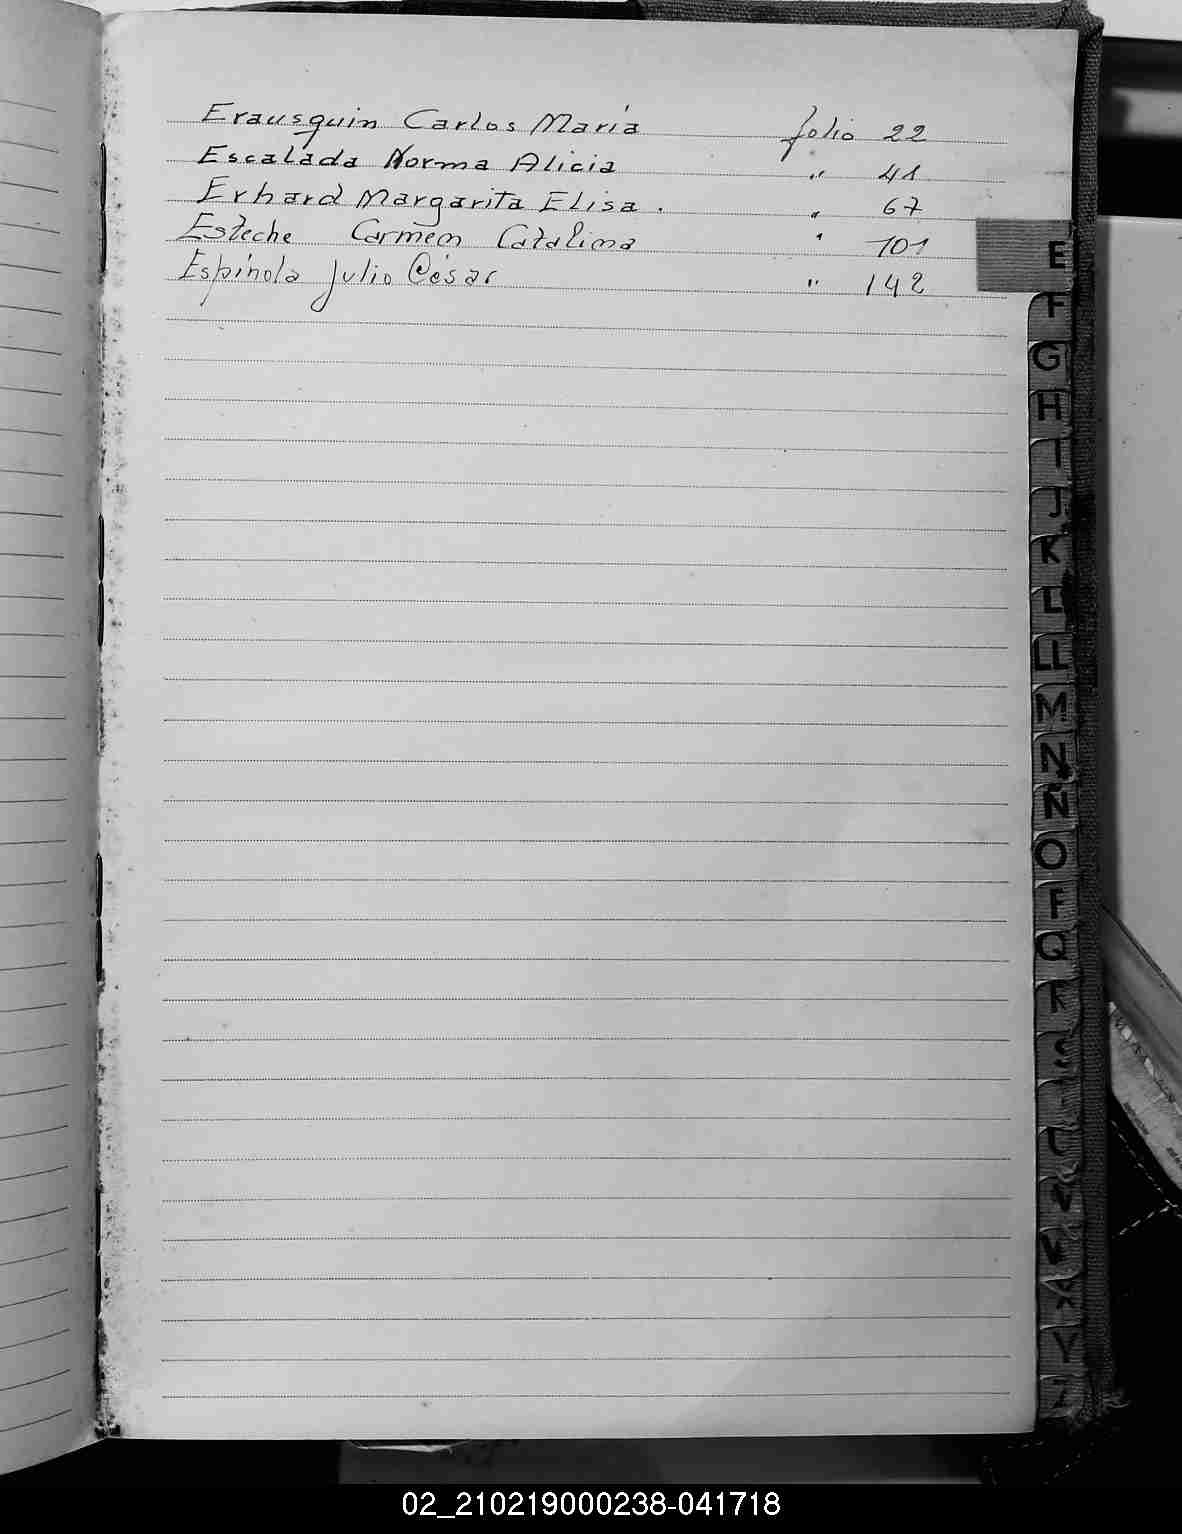 Erausquin Carlos María folio 22
Escalada Norma Alicia " 41
Erhard Margarita Elisa. " 67
Esteche Carmen Catalina " 101
Espínola Julio César " 142
E
F
G
H
I
J
K
L
LL
M
N
Ñ
O
P
Q
R
S
T
U
V
W
X
Y
Z
02_210219000238-041718